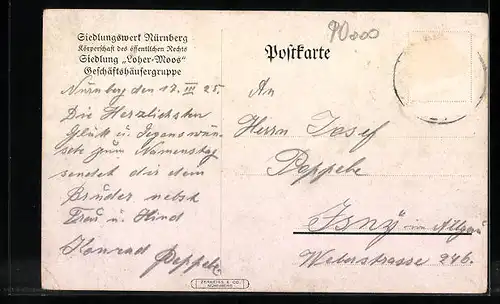 Siedlungswerk Nürnberg
Körperschaft des öffentlichen Rechts
Siedlung „Loher-Moos"
Geschäftshäusergruppe
Nürnberg den 17. III 25.
Die Herzlichsten
Glück u. Segenswün-
sche zum Namenstag
sendet dir dein
Bruder nebst
Frau u. Kind
Konrad Peppel
90000
Postkarte
An
Herrn Josef
Isny im Allgäu
246.
NÜRNBERG